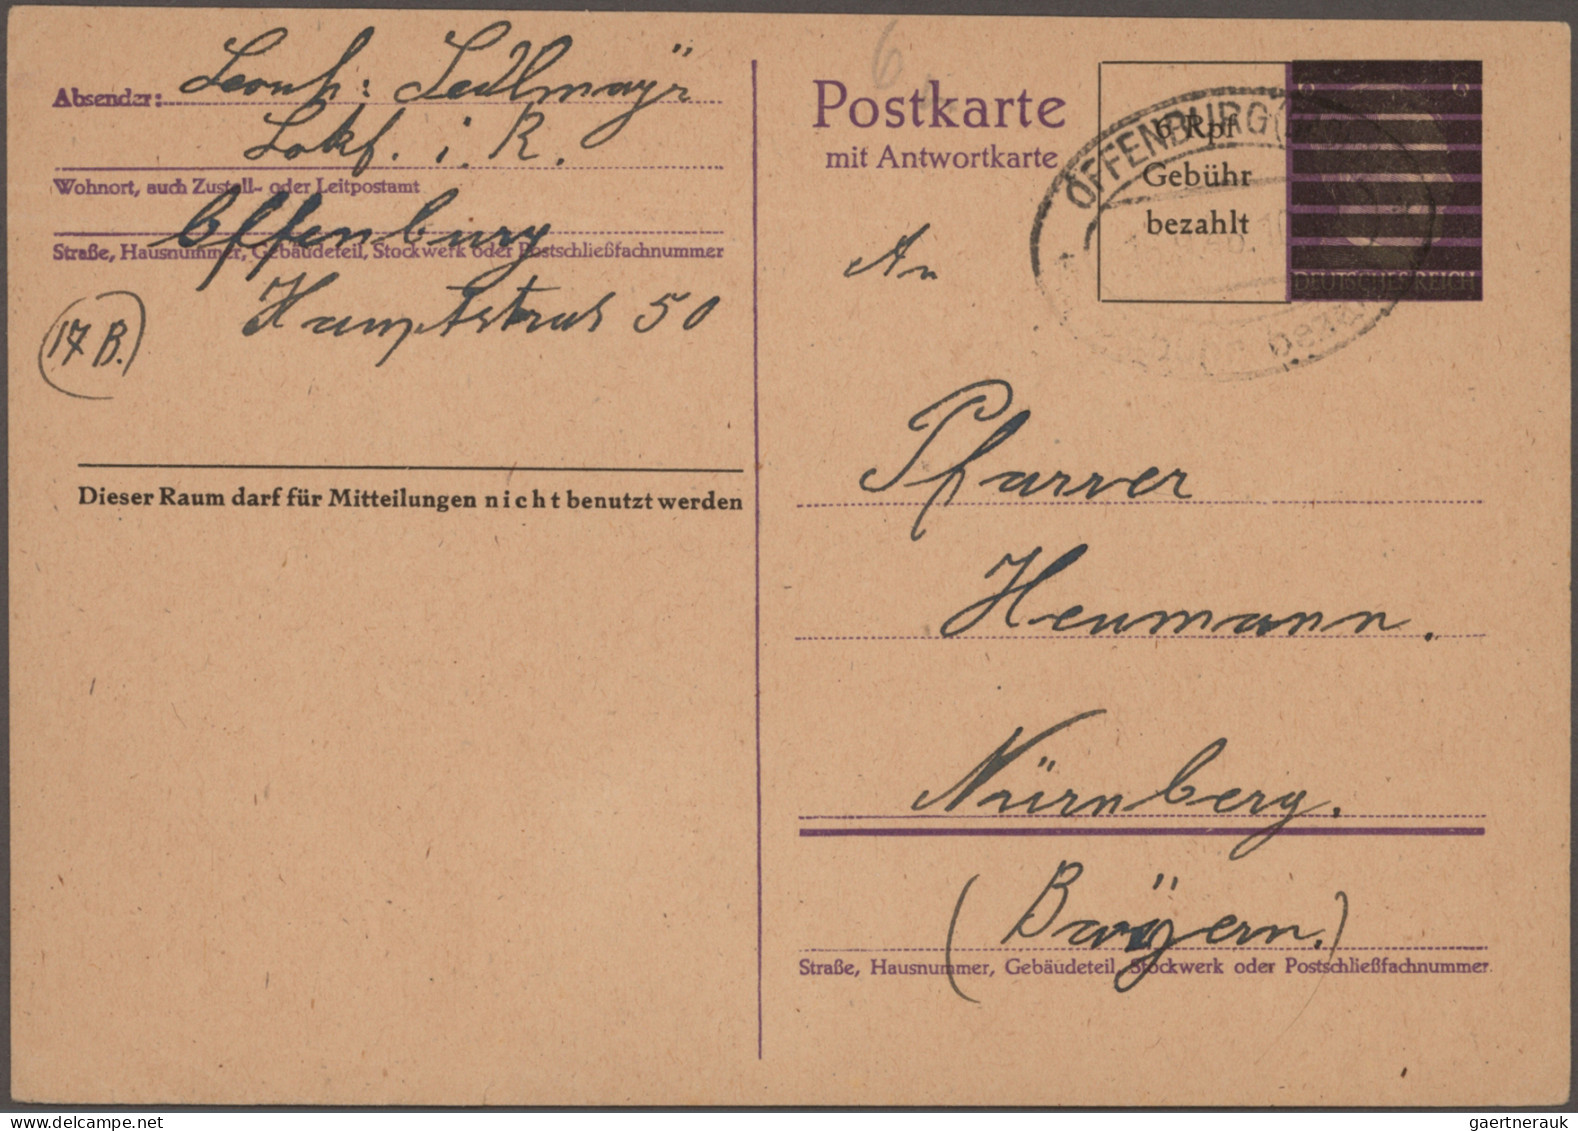 Absender: Leonh: Sedlmayr
Lokf. i. R.
Wohnort, auch Zustell- oder Leitpostamt
Offenburg
Straße, Hausnummer, Gebäudeteil, Stockwerk oder Postschließfachnummer
Hauptstraß 50
17 B.
Dieser Raum darf für Mitteilungen nicht benutzt werden
6
Postkarte
mit Antwortkarte
6 Rpf
Gebühr
bezahlt
6 6
DEUTSCHES REICH
OFFENBURG
An
Pfarrer
Heumann.
Nürnberg.
(Baÿern.)
Straße, Hausnummer, Gebäudeteil, Stockwerk oder Postschließfachnummer
gaertnerauk